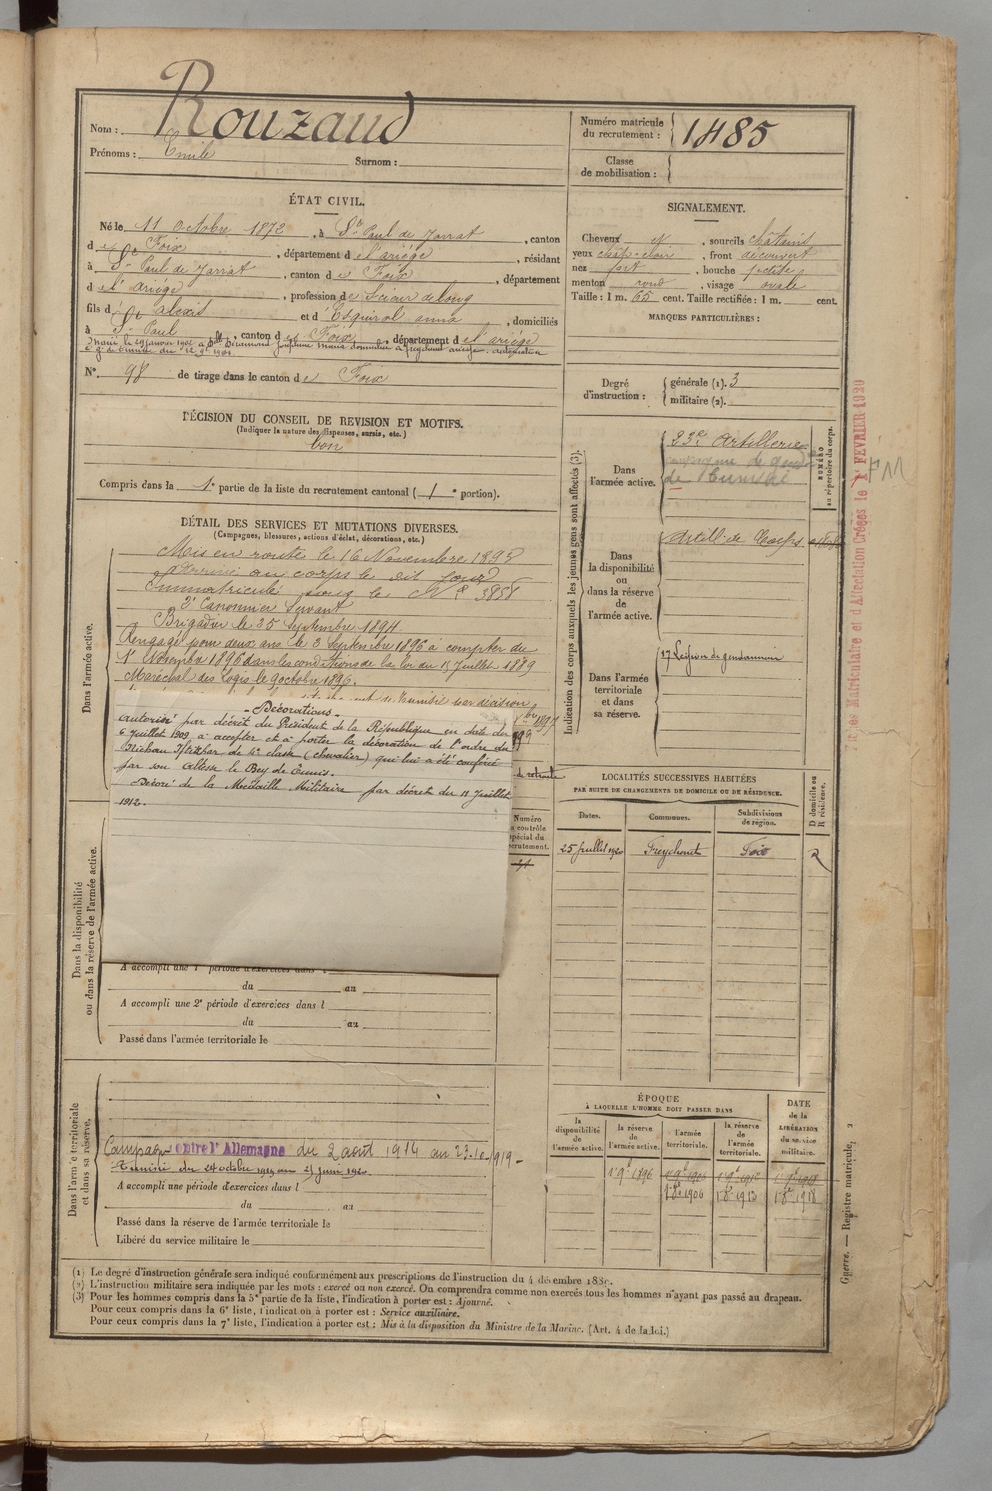 Nom : Rouzaud
Prénoms : Emile Surnom :
Numéro matricule du recrutement : 1485
Classe de mobilisation :
ÉTAT CIVIL.
Né le 11 octobre 1872, à St Paul de Jarrat, canton
de Foix, département de l'ariége, résidant
à St Paul de Jarrat, canton de Foix, département
de l'ariége, profession de Scieur de long
fils d'alexis et d'Esquirol anna, domiciliés
à St Paul, canton de Foix, département de l'ariége
Marié le 29 janvier 1902 à
No 98 de tirage dans le canton de Foix
DÉCISION DU CONSEIL DE REVISION ET MOTIFS.
(Indiquer la nature des dispenses, sursis, etc.)
bon
Compris dans la 1e partie de la liste du recrutement cantonal (1e portion).
DÉTAIL DES SERVICES ET MUTATIONS DIVERSES.
(Campagnes, blessures, actions d'éclat, décorations, etc.)
Dans l'armée active.
Mis en route le 16 Novembre 1893
Arrivé au corps le dit jour
Immatriculé sous le No 3858
2e Canonnier Servant
Brigadier le 25 Septembre 1894
Rengagé pour deux ans le 3 Septembre 1896 à compter du
1er Novembre 1896 dans les conditions de la loi du 15 Juillet 1889
Maréchal des Logis le 9 octobre 1896.
- Décorations -
autorisé par décret du Président de la République en date du
6 juillet 1909 à accepter et à porter la décoration de l'ordre du
Nichan Iftikhar de 4e classe (chevalier) qui lui a été conférée
par son Altesse le Bey de Tunis.
Décoré de la Médaille Militaire par décret du 11 Juillet
1912.
de retraite
Numéro
au contrôle
spécial du
recrutement.
Dans la disponibilité
ou dans la réserve de l'armée active.
A accompli une 1e période d'exercices dans l
du au
A accompli une 2e période d'exercices dans l
du au
Passé dans l'armée territoriale le
Dans l'armée territoriale
et dans sa réserve.
Campagne contre l'Allemagne du 2 août 1914 au 23-10-1919-
Tunisie du 24 octobre 1919 au 25 juin 1920
A accompli une période d'exercices dans l
du au
Passé dans la réserve de l'armée territoriale le
Libéré du service militaire le
SIGNALEMENT.
Cheveux et, sourcils châtains
yeux chât. clair, front découvert
nez fort, bouche petite
menton rond, visage ovale
Taille : 1 m. 65 cent. Taille rectifiée : 1 m. cent.
MARQUES PARTICULIÈRES :
Degré d'instruction : générale (1). 3
militaire (2).
Indication des corps auxquels les jeunes gens sont affectés (3).
Dans l'armée active. 23e Artillerie
compagnie de gend
de Tunisie
NUMÉRO
au répertoire du corps.
Dans la disponibilité ou dans la réserve de l'armée active. Artill. de Corps
Dans l'armée territoriale et dans sa réserve. 17 Légion de gendarmerie
LOCALITÉS SUCCESSIVES HABITÉES
PAR SUITE DE CHANGEMENTS DE DOMICILE OU DE RÉSIDENCE.
Dates. Communes. Subdivisions de région. D domicile ou R résidence.
25 Juillet 1920 Freychenet Foix R
ÉPOQUE
À LAQUELLE L'HOMME DOIT PASSER DANS
la disponibilité de l'armée active. la réserve de l'armée active. l'armée territoriale. la réserve de l'armée territoriale. DATE de la LIBÉRATION du service militaire.
1 9e 1896 1 9e 1906 1 9e 1912 1 9e 1918
1 8e 1906 1 8e 1912 1 8e 1918
(1) Le degré d'instruction générale sera indiqué conformément aux prescriptions de l'instruction du 4 décembre 1889.
(2) L'instruction militaire sera indiquée par les mots : exercé ou non exercé. On comprendra comme non exercés tous les hommes n'ayant pas passé au drapeau.
(3) Pour les hommes compris dans la 5e partie de la liste, l'indication à porter est : Ajourné.
Pour ceux compris dans la 6e liste, l'indication à porter est : Service auxiliaire.
Pour ceux compris dans la 7e liste, l'indication à porter est : Mis à la disposition du Ministre de la Marine. (Art. 4 de la loi.)
Guerre. — Registre matricule, 2
Matriculaire et d'Affectation Créées le 1er FÉVRIER 1920